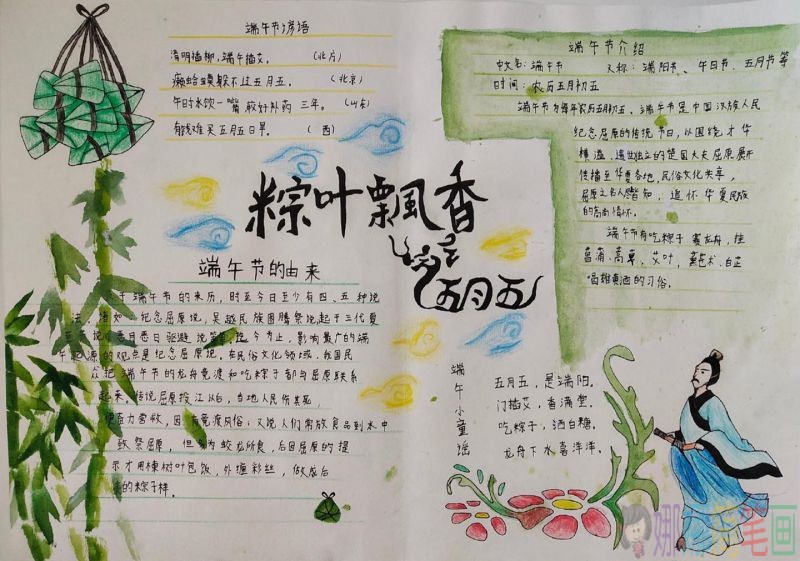 端午节谚语
清明插柳，端午插艾。 （北方）
癞蛤蟆躲不过五月五。 （北京）
午时水饮一嘴，较好补药三年。（山东）
有钱难买五月五日旱。 （西）
粽叶飘香
五月五
端午节的由来
于端午节的来历，时至今日至少有四、五种说
法，诸如：纪念屈原说，吴越民族图腾祭说起于三代夏
恶月恶日驱避说等，迄今为止，影响最广的端
午起源的观点是纪念屈原说。在民俗文化领域，我国民
众把端午节的龙舟竞渡和吃粽子都与屈原联系
起来。传说屈原投江以后，当地人民伤其死，
便奋力营救，因有竞渡风俗；又说人们常放食品到水中
致祭屈原，但多为蛟龙所食，后因屈原的提
示才用楝树叶包饭，外缠彩丝，做成后
的粽子样。
端午节介绍
中文名：端午节 又称：端阳节、午日节、五月节等
时间：农历五月初五
端午节为每年农历五月初五。端午节是中国汉族人民
纪念屈原的传统节日，以围绕才华
横溢、遗世独立的楚国大夫屈原展开
传播至华夏各地，民俗文化共享，
屈原之名人尽皆知，追怀华夏民族
的高尚情怀。
端午节有吃粽子，赛龙舟，挂
菖蒲、蒿草、艾叶，薰苍术、白芷
喝雄黄酒的习俗。
端午小童谣
五月五，是端阳。
门插艾，香满堂。
吃粽子，洒白糖。
龙舟下水喜洋洋。